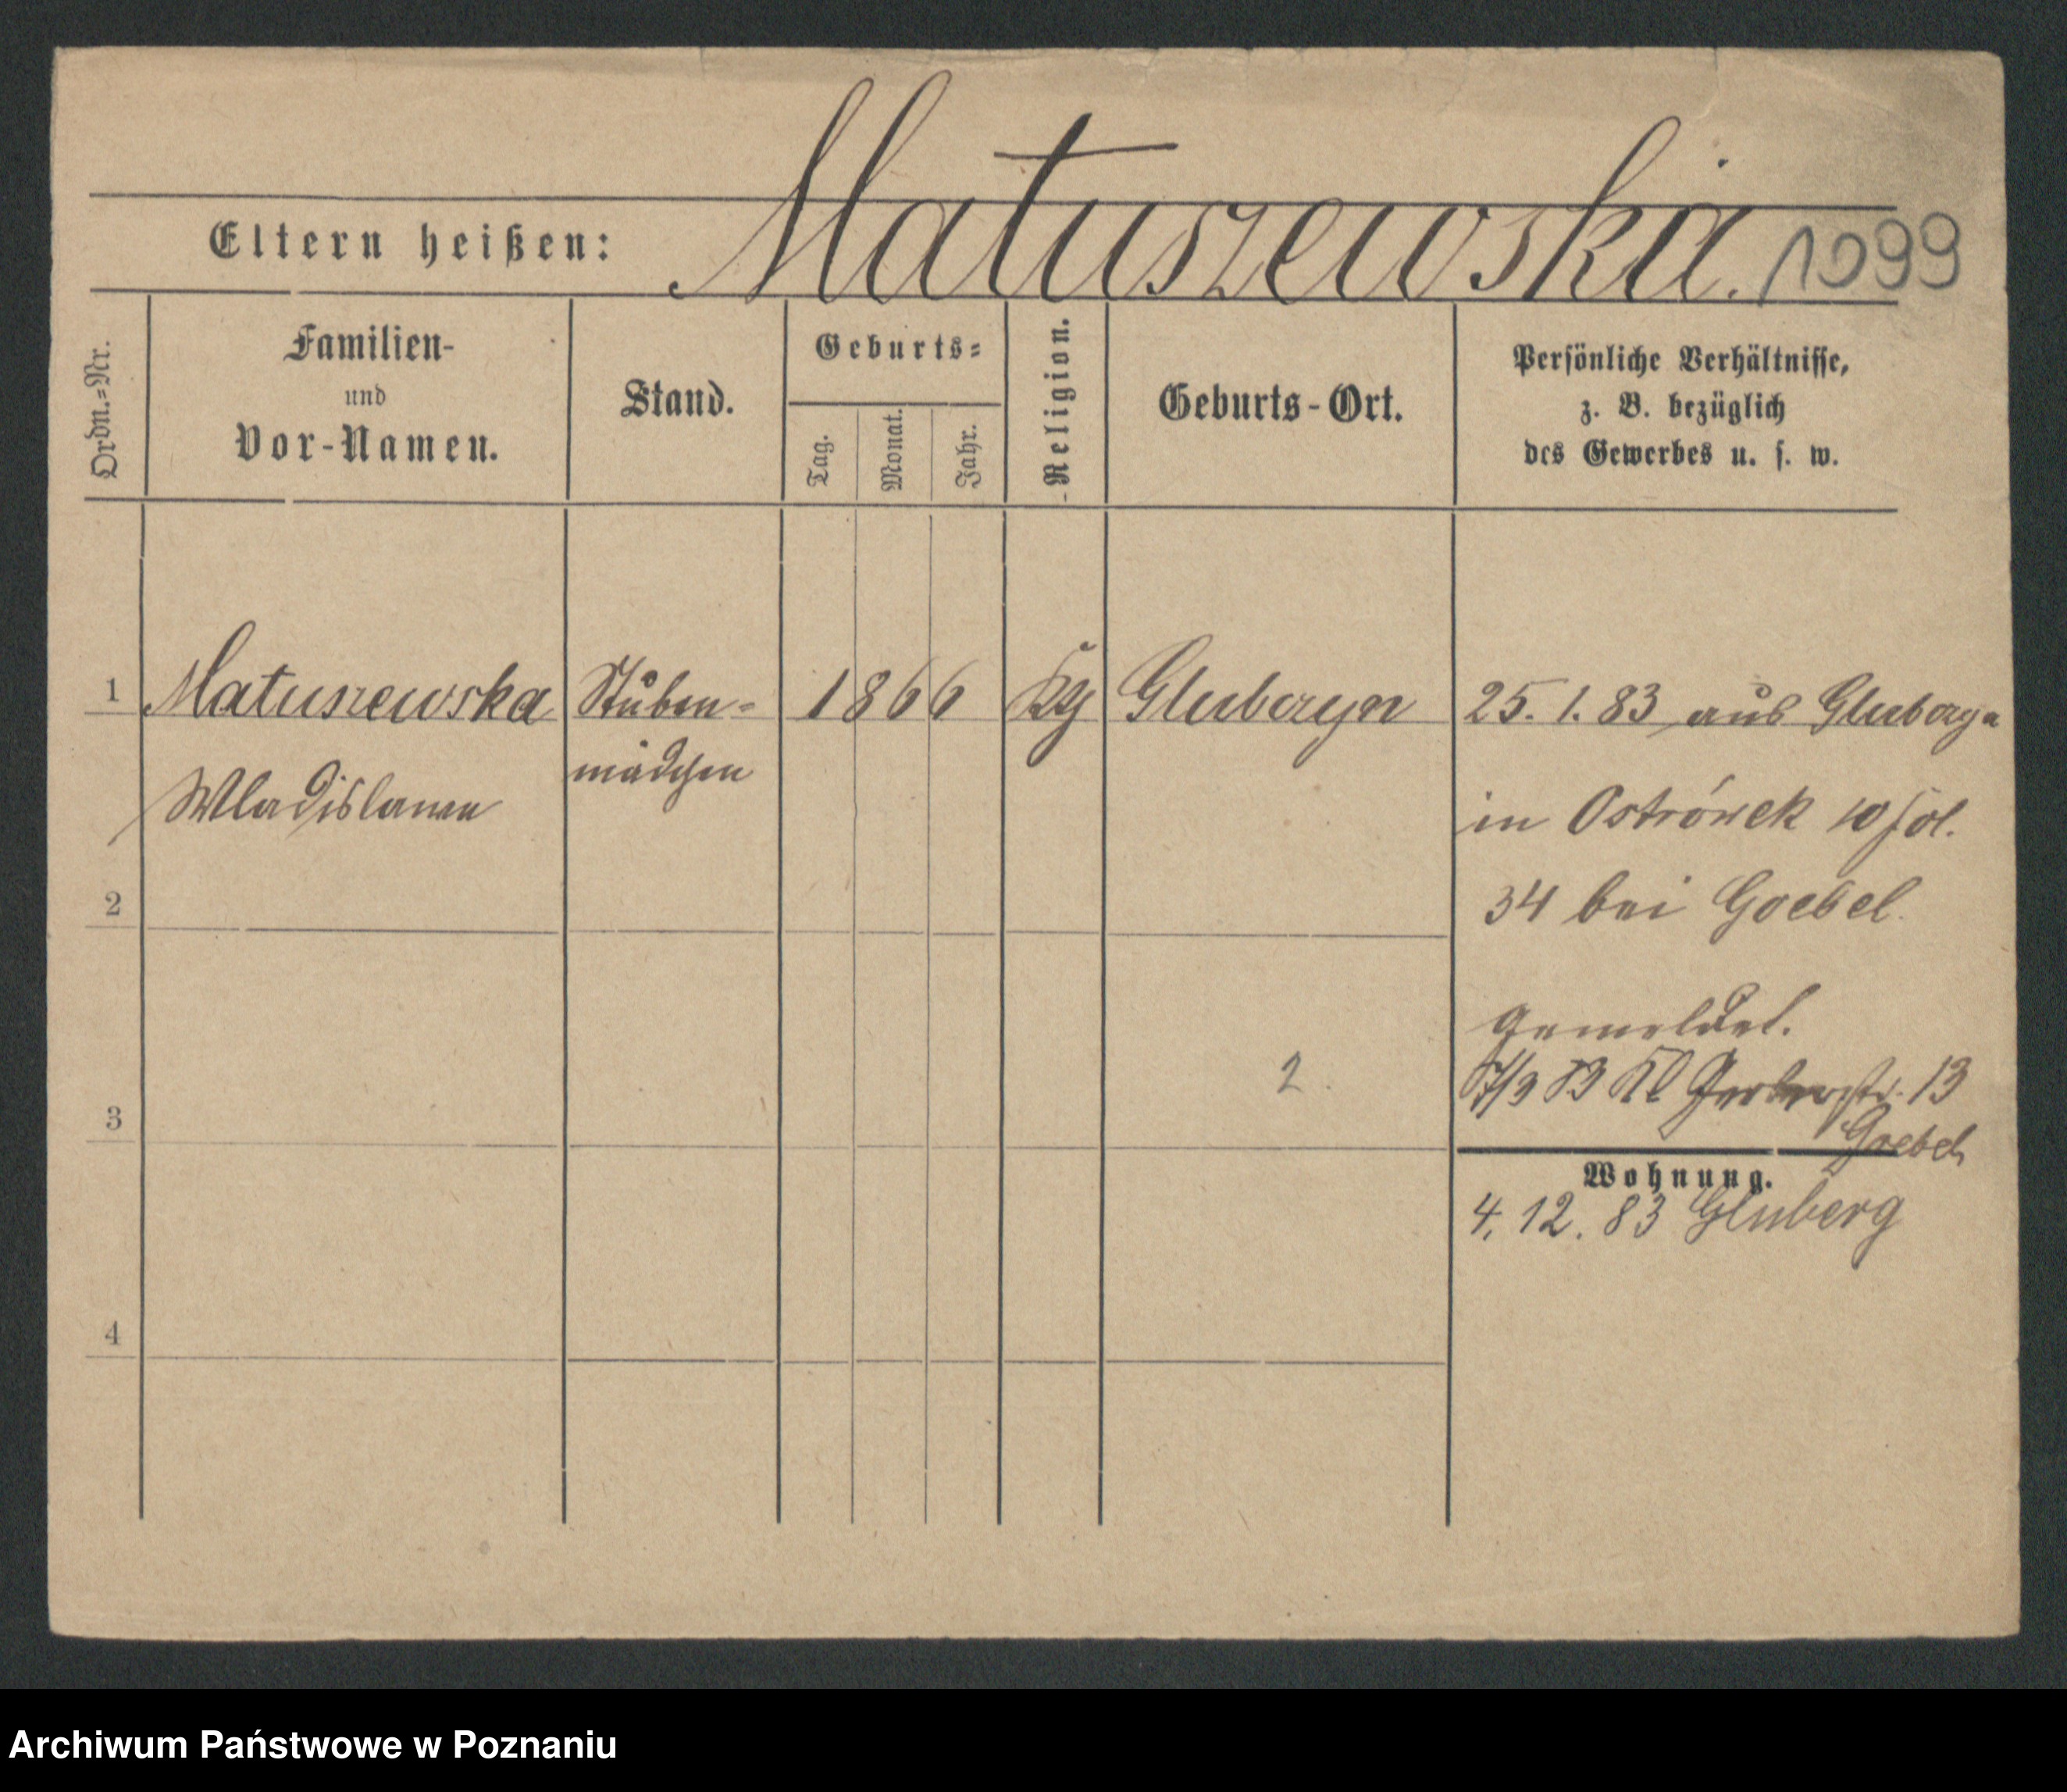 Matuszewska. 1099
Eltern heißen:
Ordn.=Nr.
Familien-
und
Vor-Namen.
Stand.
Geburts=
Tag.
Monat.
Jahr.
Religion.
Geburts-Ort.
Persönliche Verhältnisse,
z. B. bezüglich
des Gewerbes u. s. w.
1 Matuszewska Stuben= 1866 Gluberyn 25. 1. 83 aus
Wladislawa mädchen
in Ostrówek
2
34 bei Goebel.
gemeldet.
2.
Kl Gerberstr. 13
3
Goebel
Wohnung.
4. 12. 83 Gluberg
4
Archiwum Państwowe w Poznaniu